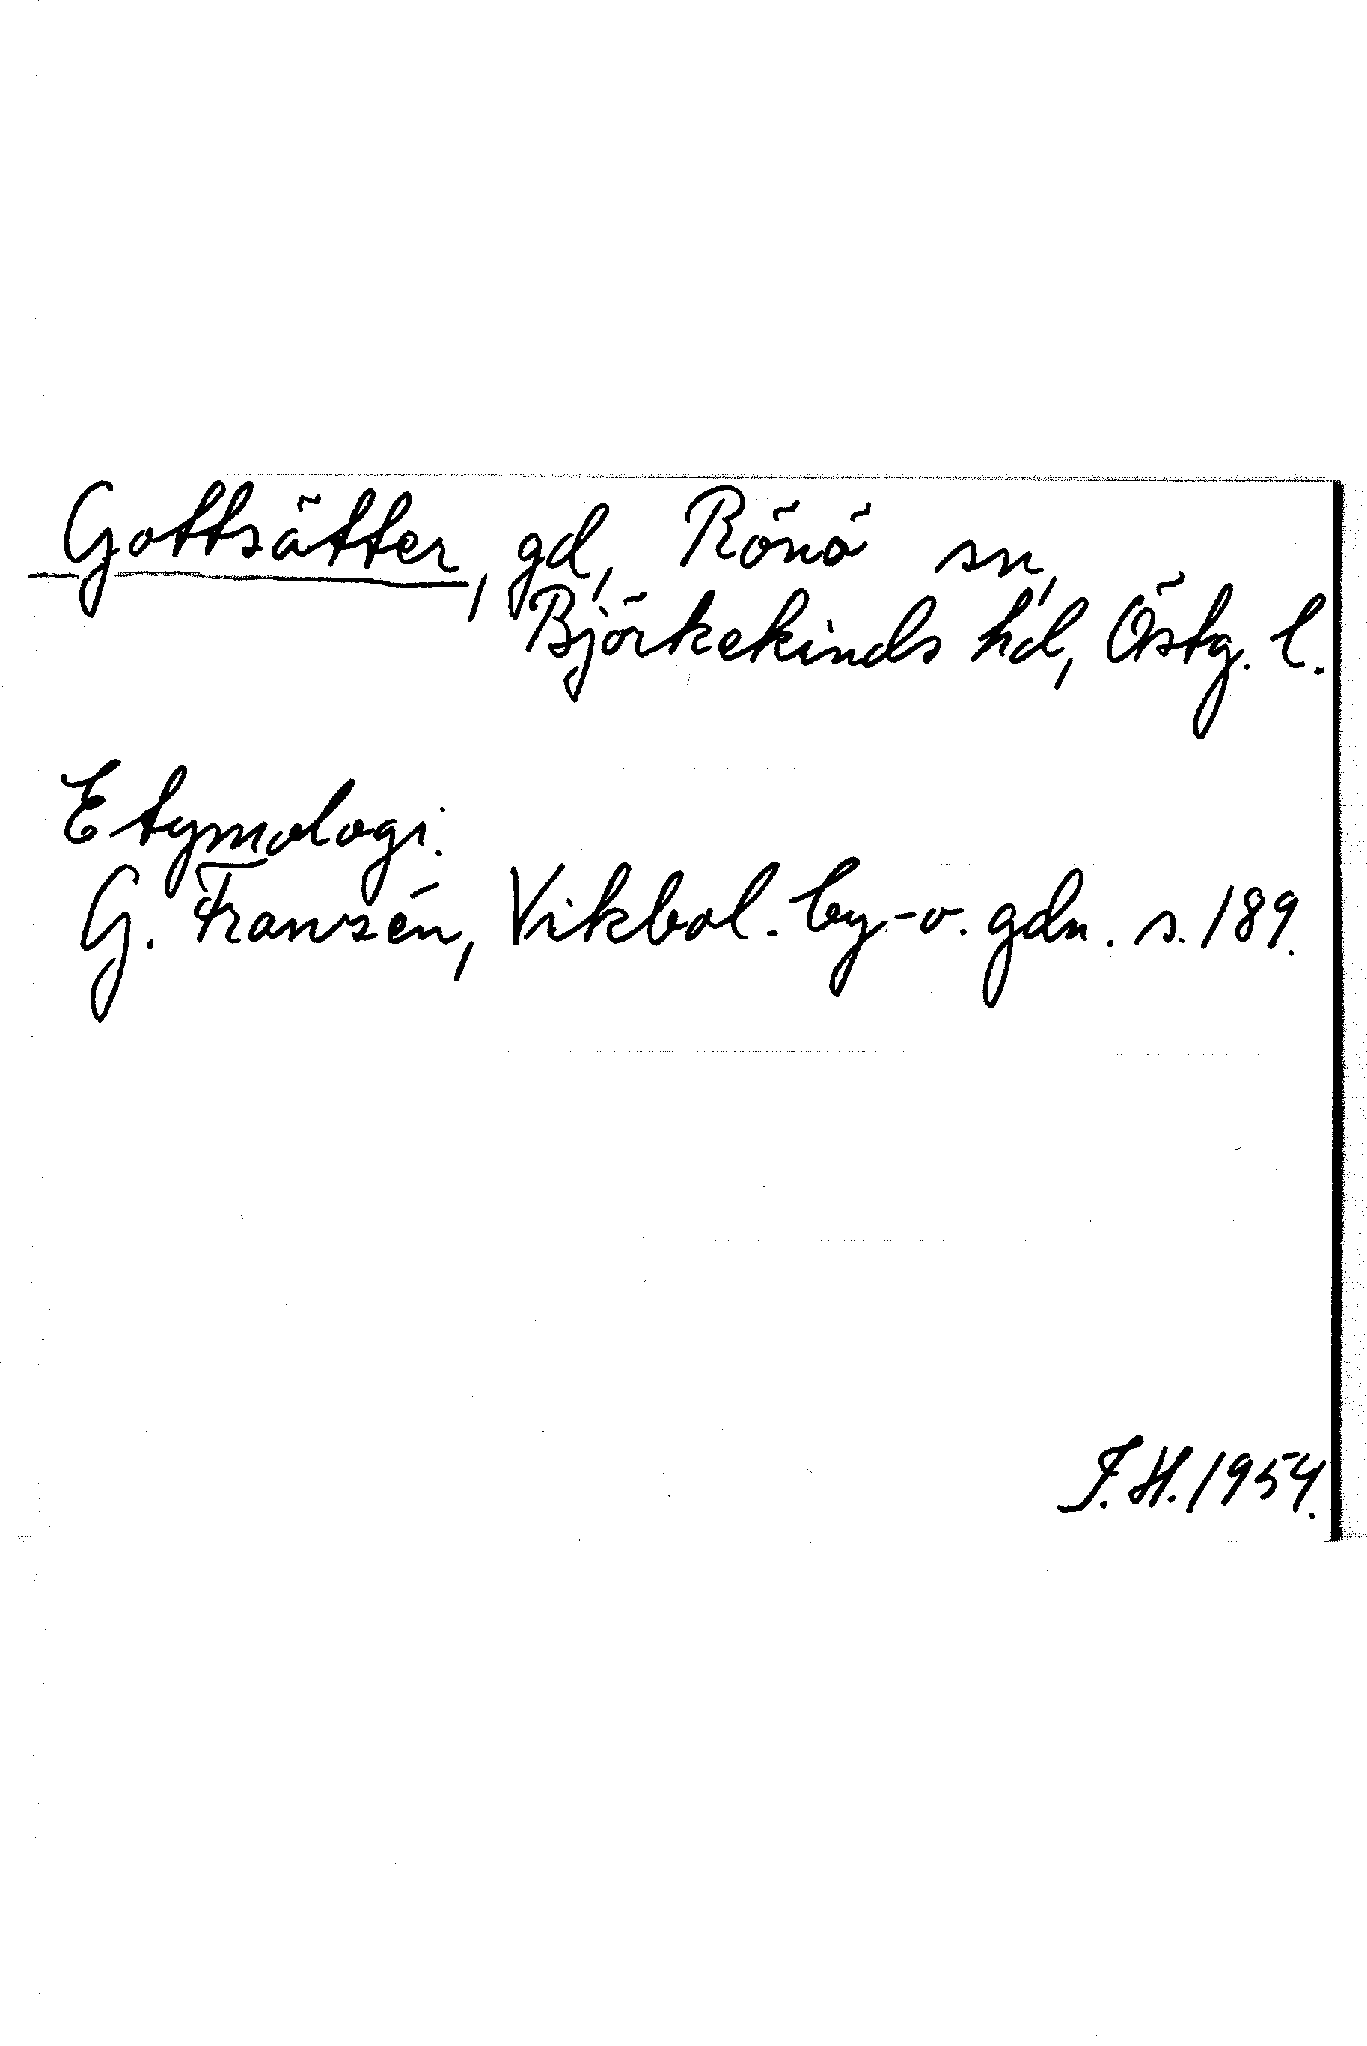 Gottsätter, gd, Rönö sn,
Björkekinds hd, Östg. l.
Etymologi.
G. Franzén, Vikbol. by- o. gdn. s. 189.
F. H. 1954.